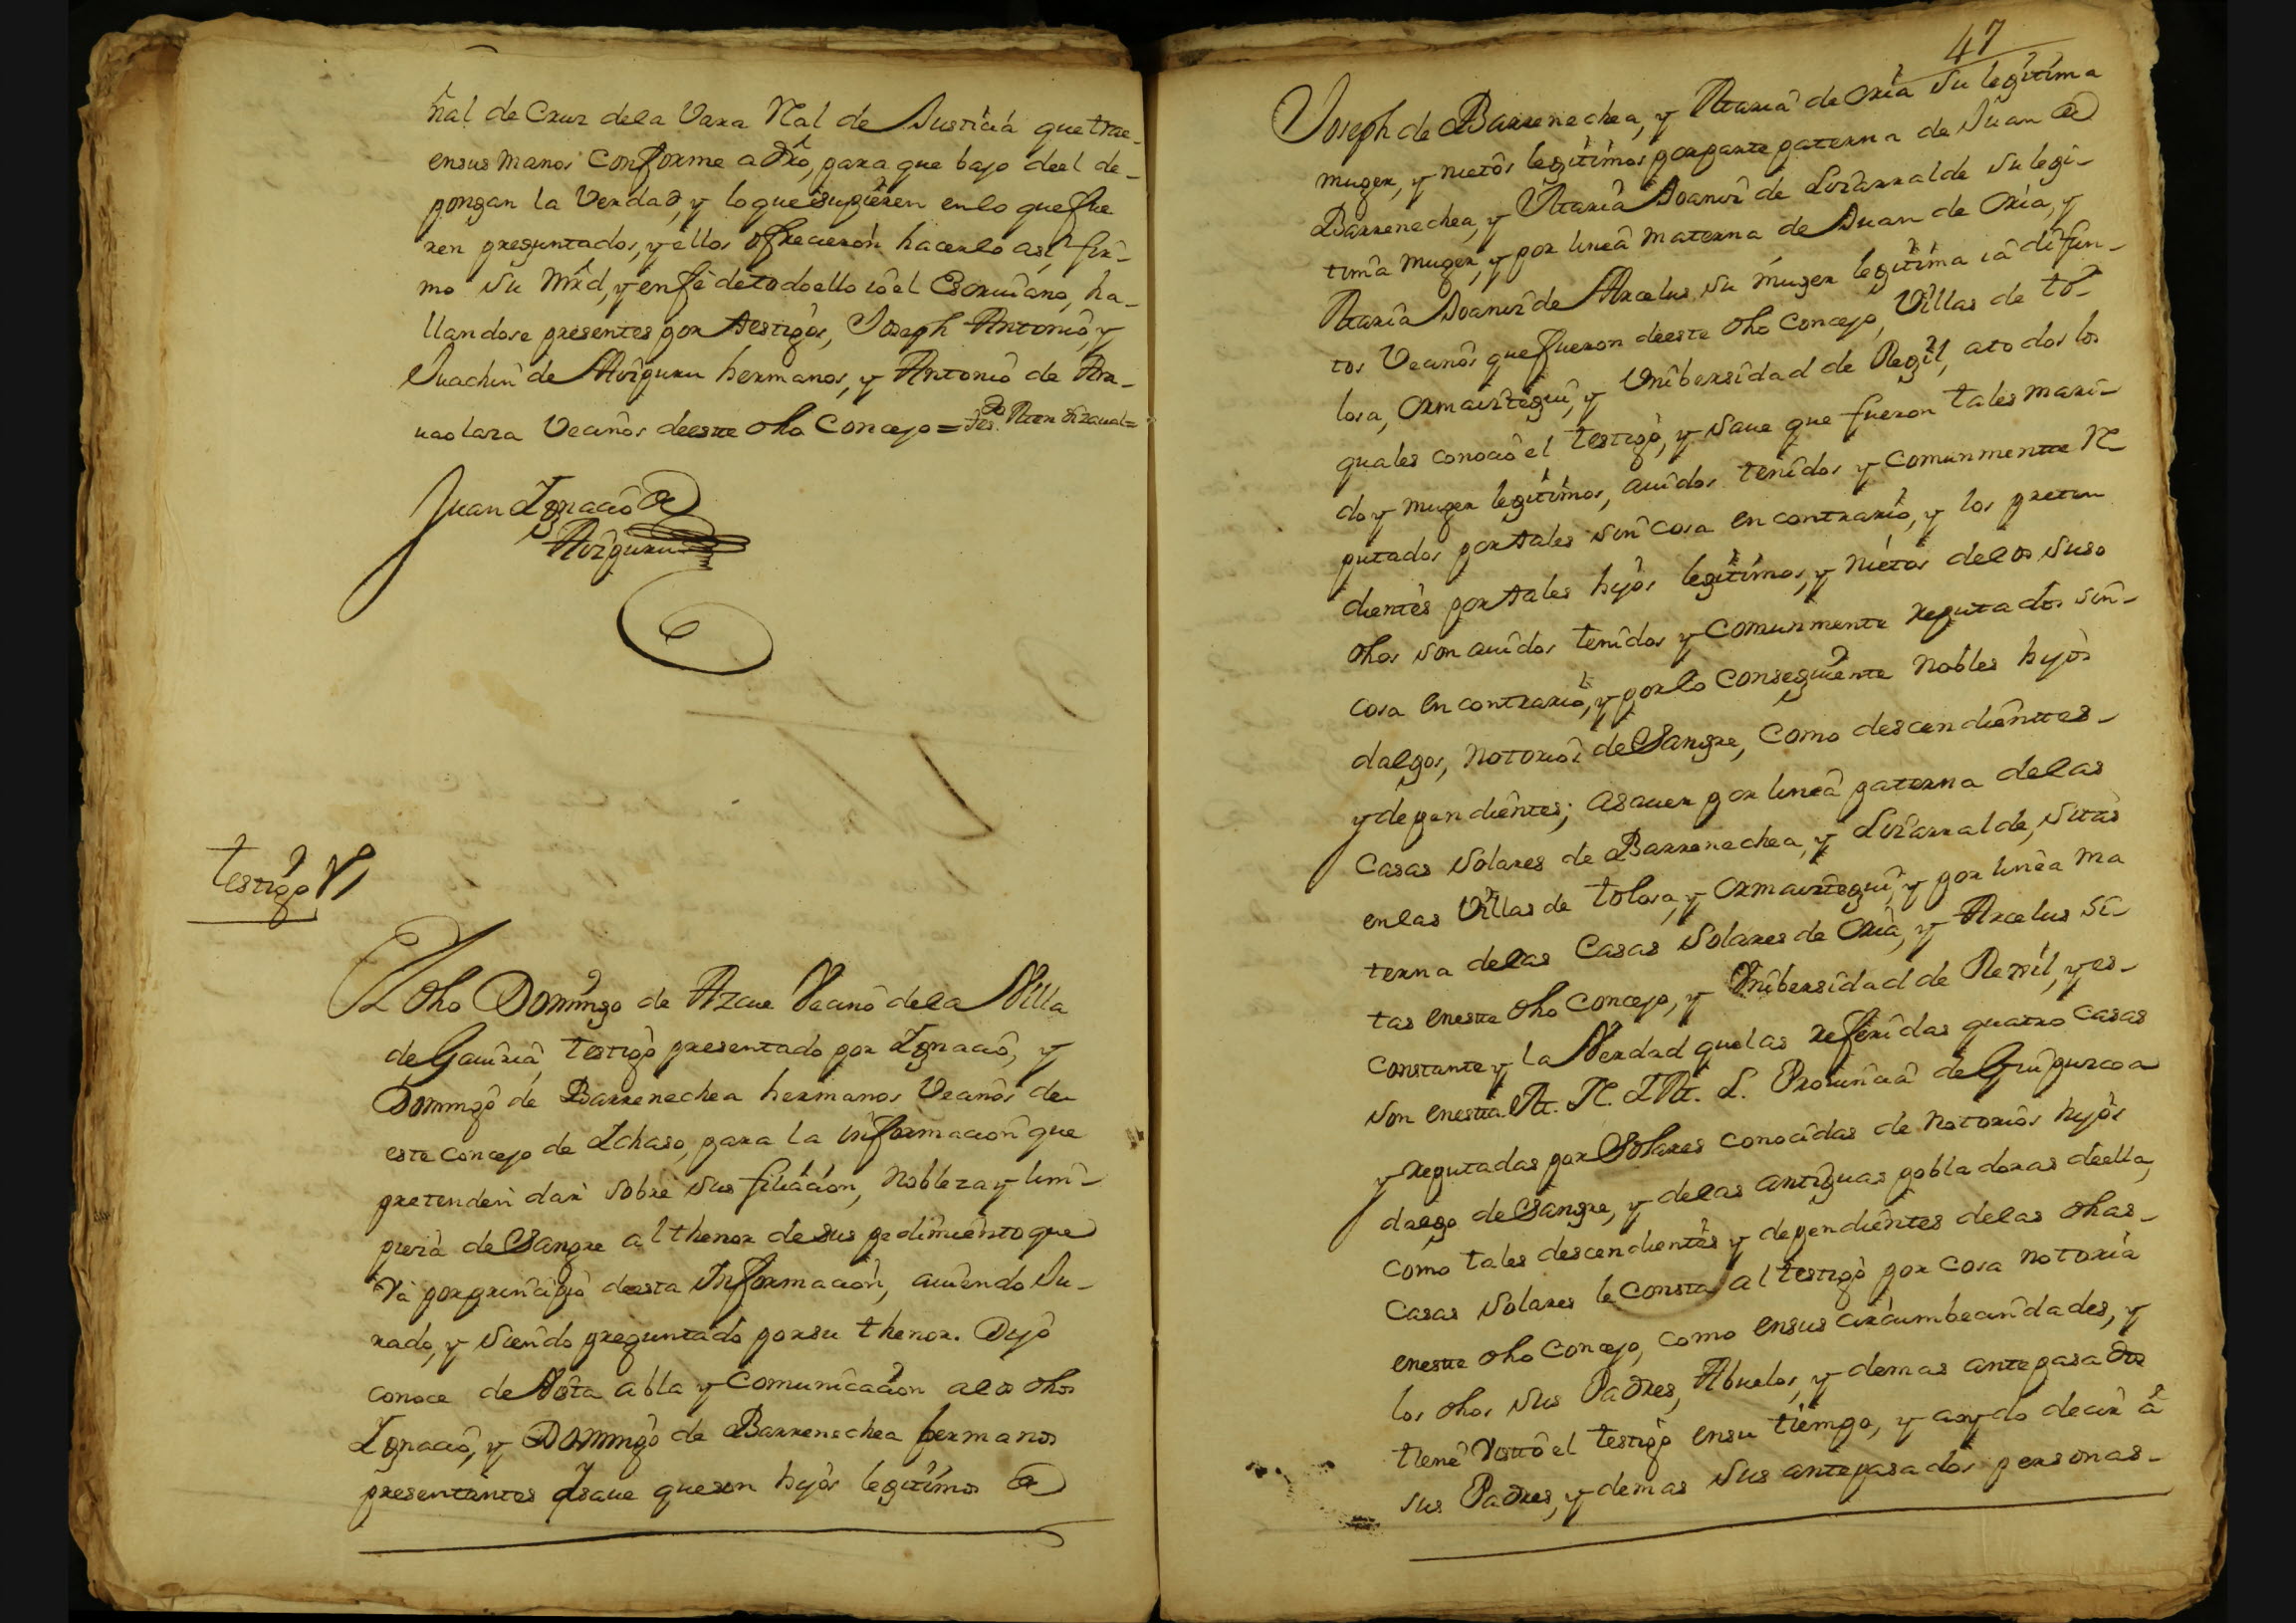 ñal de Cruz dela Vara Rl de Justicia que trae
ensus manos conforme a dro, para que bajo deel de-
pongan la Verdad, y lo que supieren enlo que fue
ren preguntados, y ellos ofrecieron hacerlo asi, fir-
mo su mrd, y enfe detodoello io el Escriuano, ha-
llandose presentes por testigos, Joseph Antonio, y
Juachin de Aizguru hermanos, y Antonio de
Vecinos deeste dho Concejo =
Juan Ignacio de
Aizguru
testigo VI
El dho Domingo de Azcue Vecino dela Villa
de Gauiria, testigo presentado por Ignacio, y
Domingo de Barrenechea hermanos Vecinos de
este concejo de Ichaso, para la informacion que
pretenden dar sobre sus filiacion, Nobleza y lim-
pieza de Sangre al thenor de sus pedimiento que
Va por principio deesta Informacion, auiendo Ju-
rado, y siendo preguntado porsu thenor. Dijo
conoce de Vista abla y Comunicacion alos dhos
Ignacio, y Domingo de Barrenechea hermanos
presentantes saue queson hijos legitimos de
47
Joseph de Barrenechea, y Maria de Oria su legitima
muger, y nietos legitimos porparte paterna de Juan de
Barrenechea, y Maria Joaniz de Lizarralde su legi-
tima muger, y por linea materna de Juan de Oria, y
Maria Joaniz de Arcelus su muger legitima ia difun-
tos Vecinos que fueron deeste dho Concejo, Villas de to-
losa, Ormaiztegui, y Vnibersidad de Regil, atodos los
quales conocio el testigo, y saue que fueron tales mari-
do y muger legitimos, auidos tenidos y comunmentte Re
putados portales sin cosa en contrario, y los preten
dientes portales hijos legitimos, y nietos delos suso
dhos son auidos tenidos y comunmente reputados sin-
cosa en contrario, y porlo conseguiente Nobles hijos
dalgos, Notorios de Sangre, como descendientes-
y dependientes; asauer por linea paterna delas
Casas Solares de Barrenechea, y Lizarralde, sitas
enlas Villas de tolosa, y Ormaiztegui, y por linea ma
terna delas Casas Solares de Oria, y Arcelus si-
tas eneste dho Concejo, y Vnibersidad de Rexil, yes-
constante y la Verdad quelas referidas quatro casas
son enesta M. N. I M. L. Prouincia de Guipuzcoa
y reputadas por Solares conocidas de notorios hijos
dalgo de Sangre, y delas antiguas pobladoras deella,
como tales descendientes y dependientes delas dhas-
Casas Solares le consta al testigo por cosa notoria
eneste dho Concejo, como ensus circumbecindades, y
los dhos sus Padres, Abuelos, y demas antepasados
tiene visto el testigo ensu tiempo, y aoydo decir a
sus Padres, y demas sus antepasados personas-